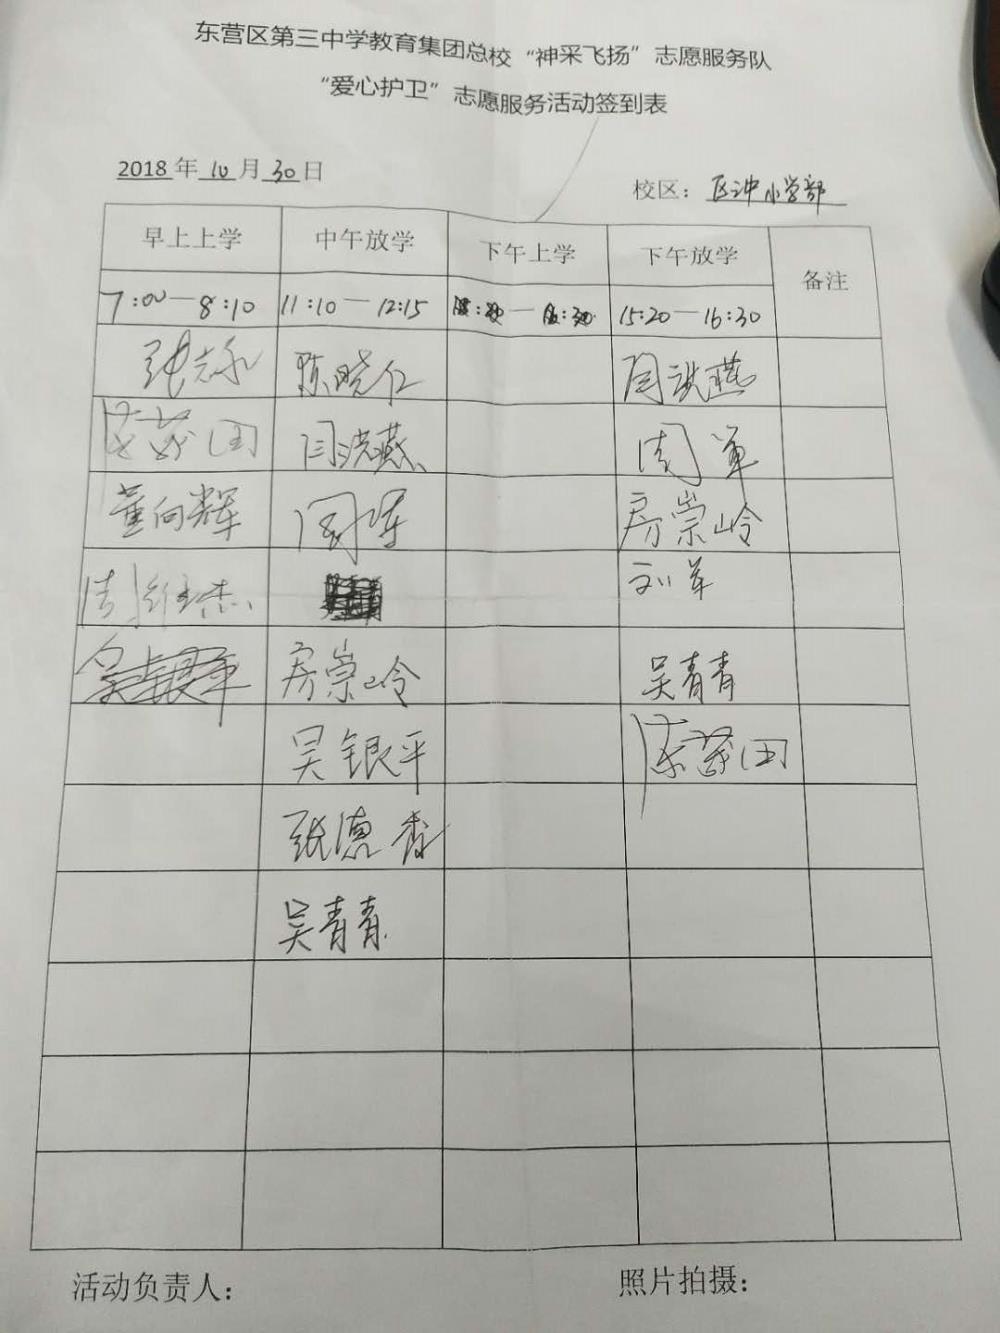 东营区第三中学教育集团总校“神采飞扬”志愿服务队
“爱心护卫”志愿服务活动签到表
2018 年 10 月 30 日
校区： 小学部
早上上学 中午放学 下午上学 下午放学 备注
7:00—8:10 11:10—12:15 15:20—16:30
张志永 陈晓仁 闫洪燕
陈茂田 闫洪燕 周军
董向辉 周军 房崇岭
周维杰 刘军
吴银平 房崇岭 吴青青
吴银平 陈茂田
张德香
吴青青
活动负责人： 照片拍摄：